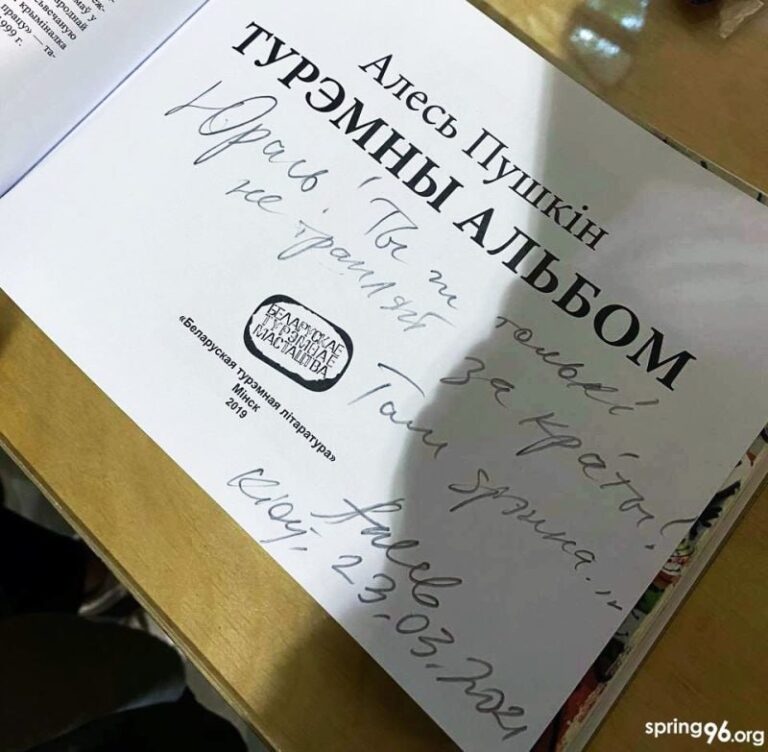 меж-
маў у
роднай
ысьвечаную
крыміналка
працу» — та-
1999 г.
Алесь Пушкін
ТУРЭМНЫ АЛЬБОМ
Юрась! Ты ж толькі
не трапляй за краты!
Там
Алесь
Кіеў, 23.03.2021
БЕЛАРУСКАЕ
ТУРЭМНАЕ
МАСТАЦТВА
«Беларуская турэмная літаратура»
Мінск
2019
spring96.org